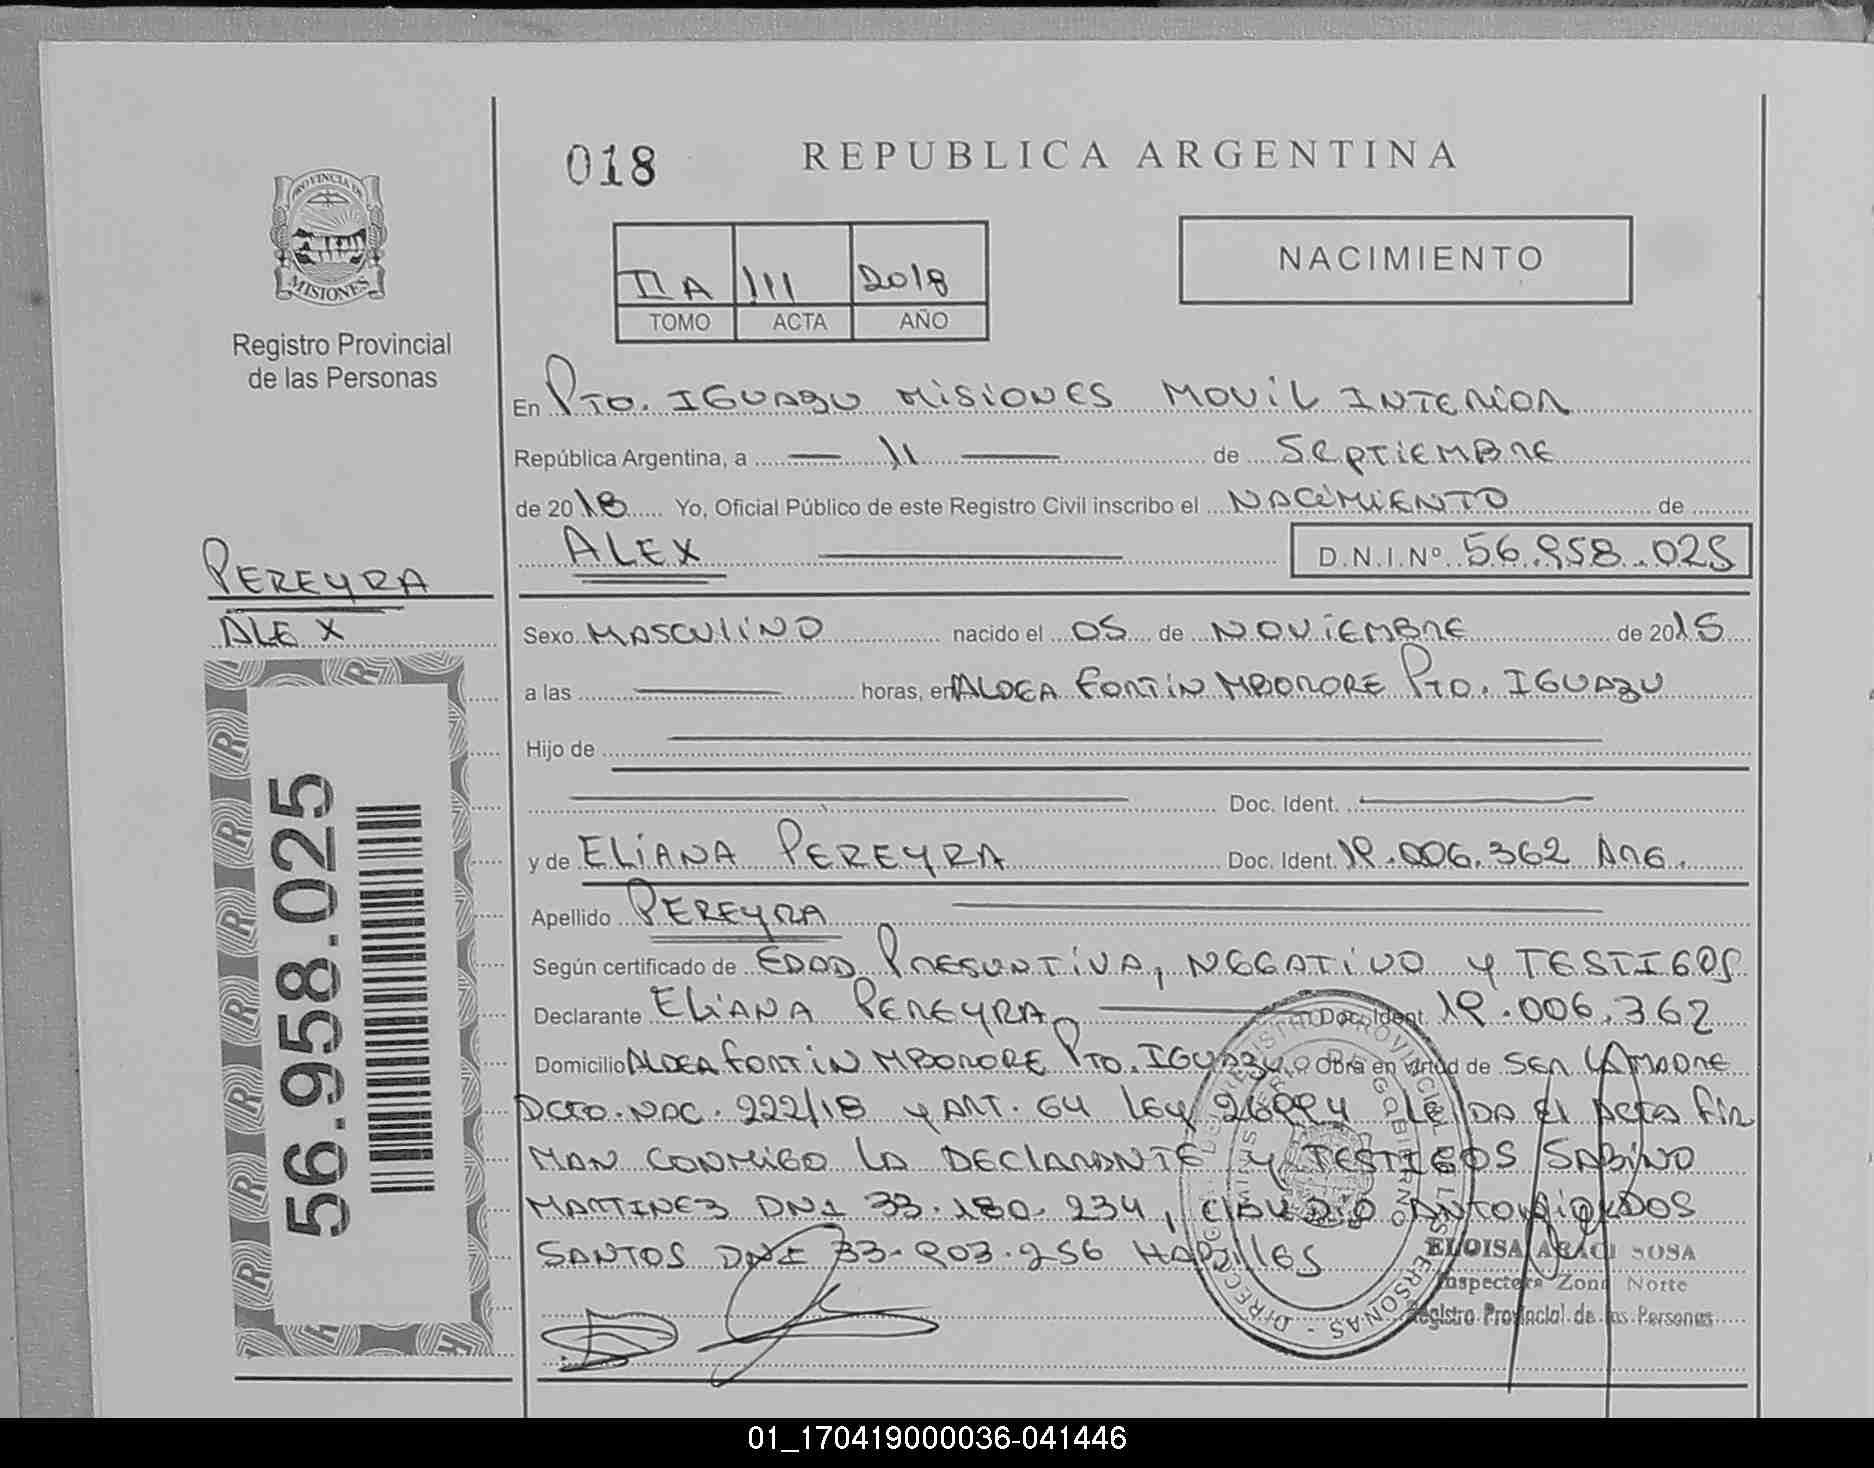 018
REPUBLICA ARGENTINA
PROVINCIA DE
MISIONES
Registro Provincial
de las Personas
II A 111 2018
TOMO ACTA AÑO
NACIMIENTO
En Pto. IGUAZU MISIONES MOVIL INTERIOR
República Argentina, a 11 de SEPTIEMBRE
de 2018 Yo, Oficial Público de este Registro Civil inscribo el NACIMIENTO de
ALEX D.N.I.Nº 56.958.025
PEREYRA
ALEX
56.958.025
Sexo MASCULINO nacido el 05 de NOVIEMBRE de 2015
a las horas, en ALDEA FORTIN MBORORE Pto. IGUAZU
Hijo de
Doc. Ident.
y de ELIANA PEREYRA Doc. Ident. 19.006.362 ARG.
Apellido PEREYRA
Según certificado de EDAD PRESUNTIVA, NEGATIVO Y TESTIGOS
Declarante ELIANA PEREYRA Doc. Ident. 19.006.362
Domicilio ALDEA FORTIN MBORORE Pto. IGUAZU Obra en virtud de SER LA MADRE
DCTO. NAC. 222/18 Y ART. 64 LEY 26994 LEIDA EL ACTA FIR
MAN CONMIGO LA DECLARANTE Y TESTIGOS SABINO
MARTINEZ DNI 33.180.234, CLAUDIO ANTONIO DOS
SANTOS DNI 33.903.256 HABILES
ELOISA ARACI SOSA
Inspectora Zona Norte
Registro Provincial de las Personas
01_170419000036-041446